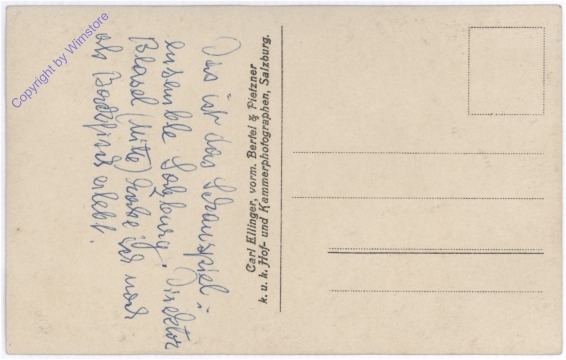 Copyright by Wimstore
Das ist das Schauspiel-
ensemble Salzburg. Direktor
Blasel (Mitte) habe ich noch
als Backfisch erlebt.
Carl Ellinger, vorm. Bertel & Pietzner
k. u. k. Hof- und Kammerphotographen, Salzburg.